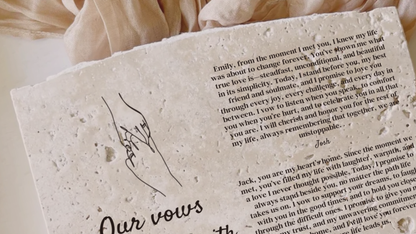 Emily, from the moment I met you, I knew my life
was about to change forever. You've shown me what
true love is—steadfast, unconditional, and beautiful
in its simplicity. Today, I stand before you, my best
friend and soulmate, and I promise to love you
through every joy, every challenge, and every day in
between. I vow to listen when you speak, to comfort
you when you're hurt, and to celebrate you in all that
you are. I will cherish and honor you for the rest of
my life, always remembering that together, we are
unstoppable.
Josh
Jack, you are my heart's home. Since the moment we
met, you've filled my life with laughter, warmth, and
a love I never thought possible. Today, I promise to
always stand beside you, no matter the path life
takes us on. I vow to support your dreams, to laugh
with you in the good times, and to hold you
through the difficult ones. I promise to give you
my trust, and my unwavering commitment.
home, and I'll love you
life leads us.
Our vows
with